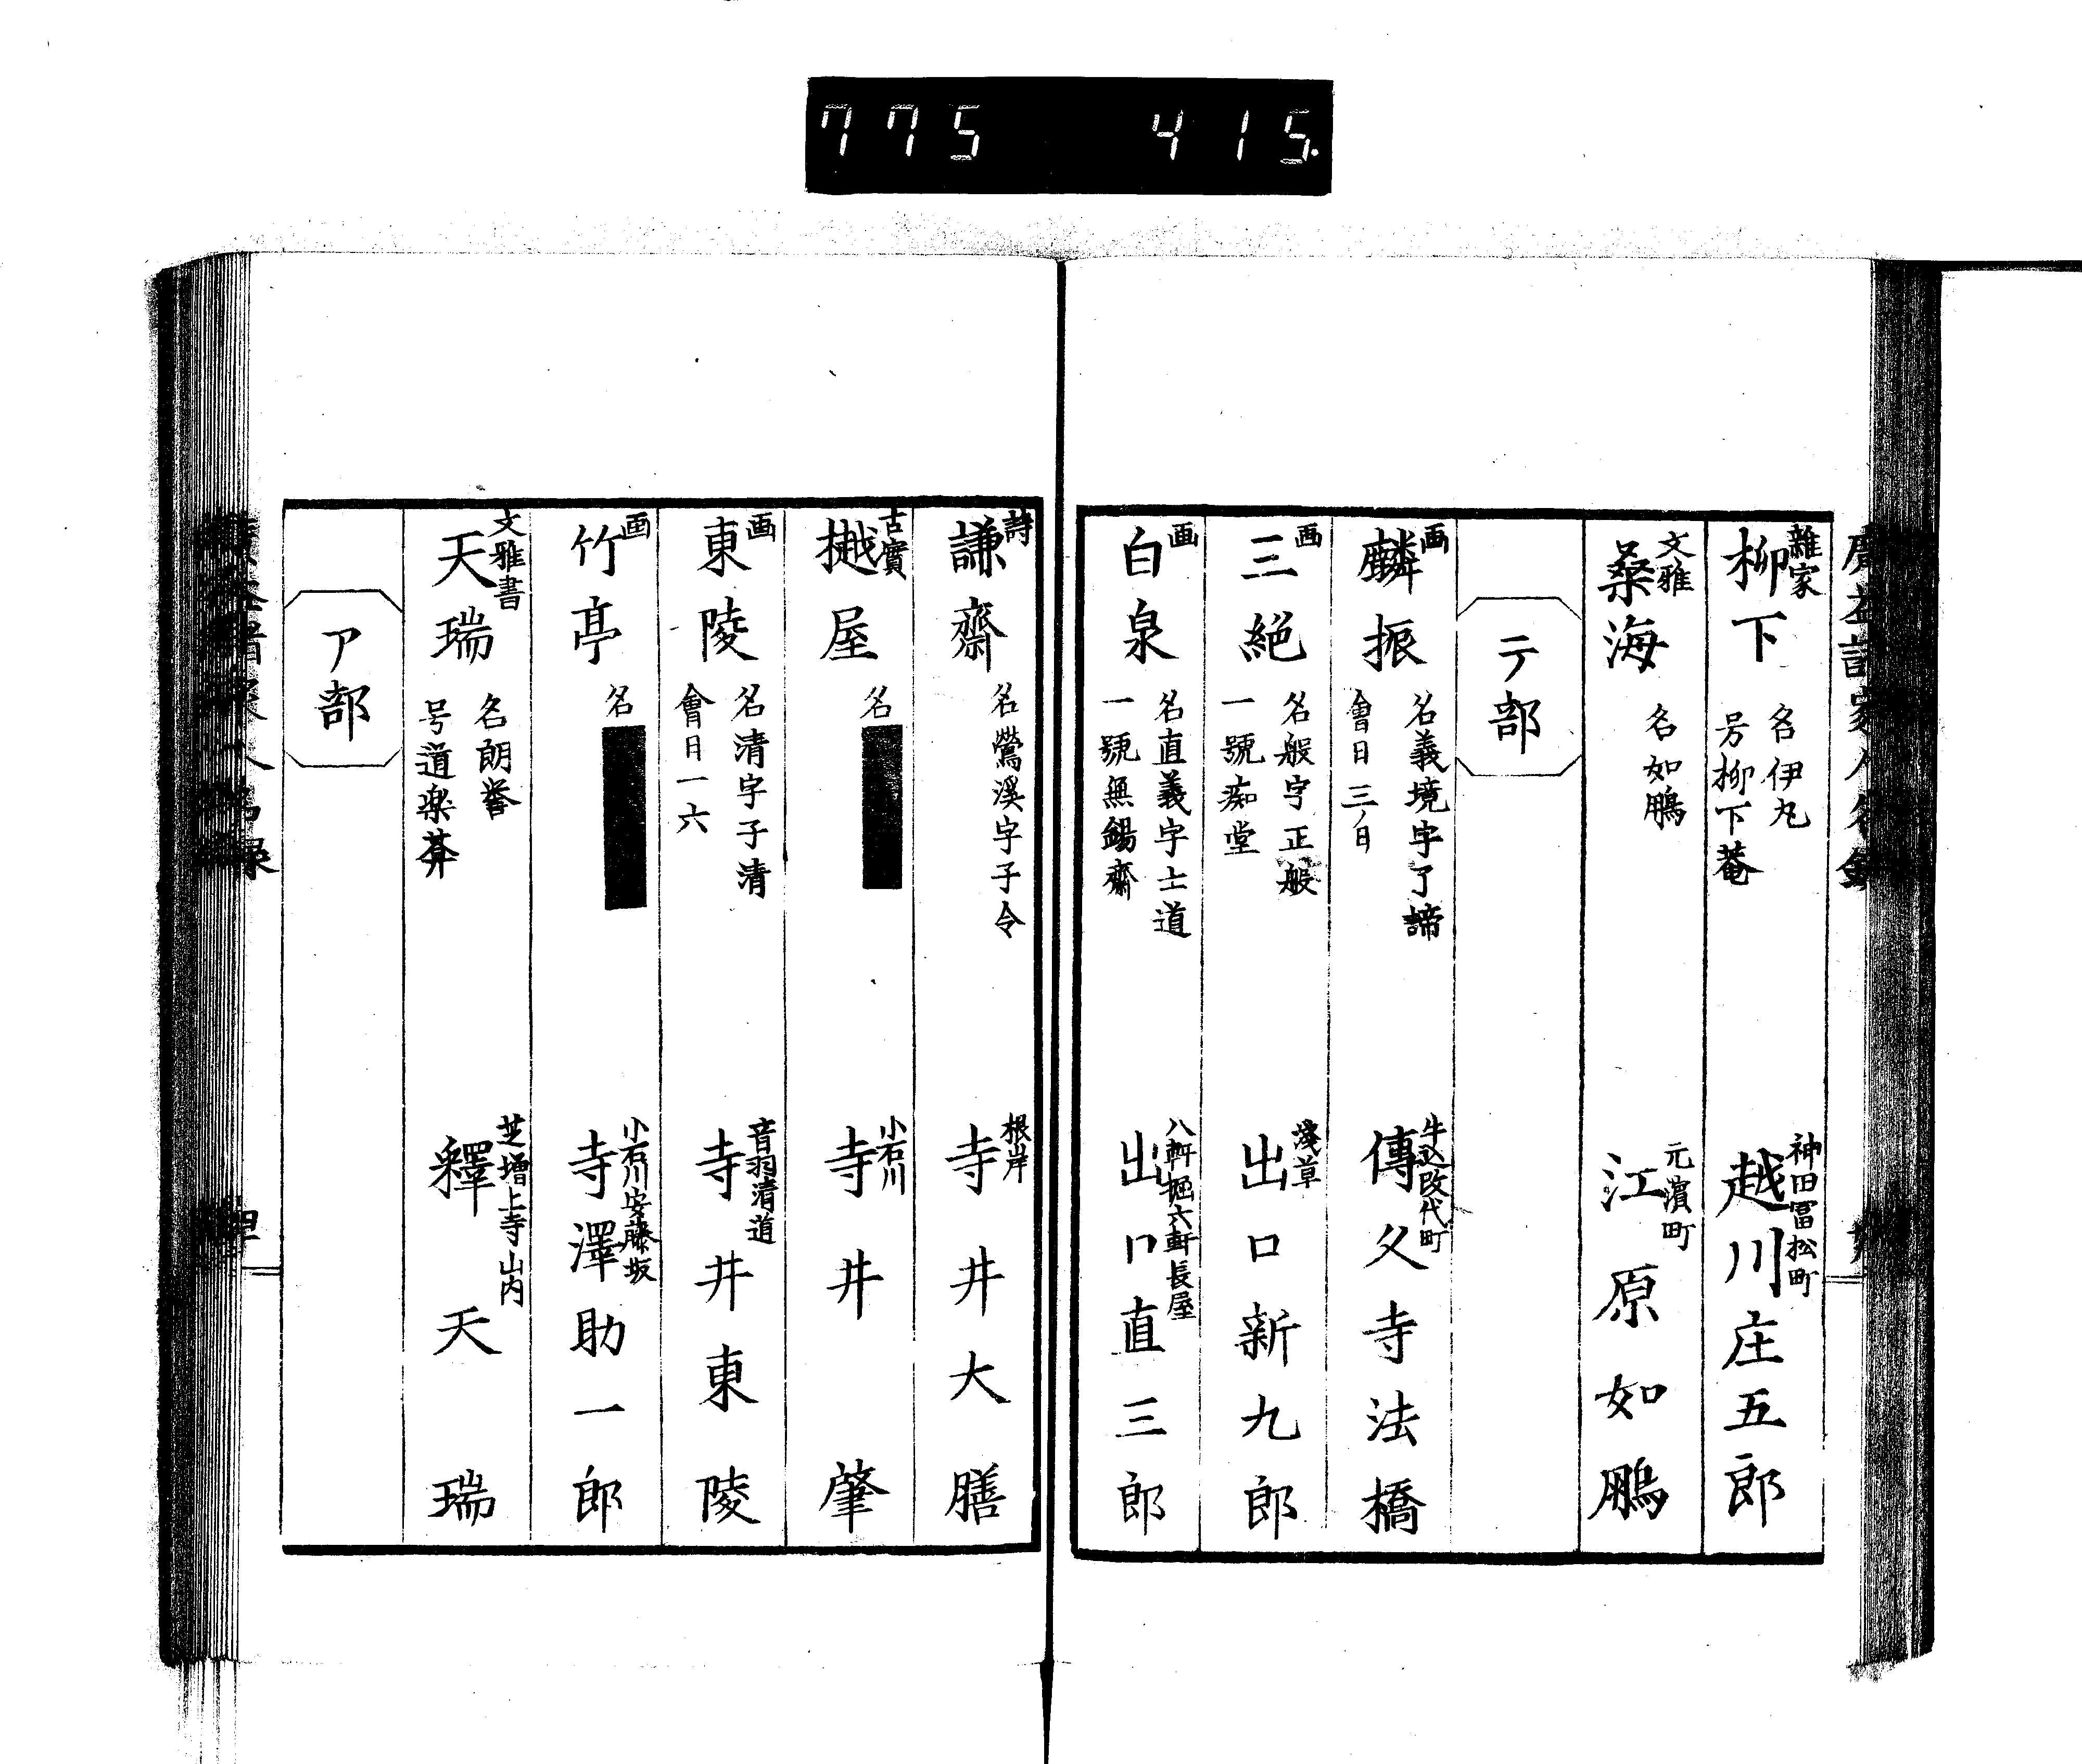 775 415.
雜家
柳下
名伊丸
号柳下菴
神田冨松町
越川庄五郎
文雅
桑海
名如鵬
元濵町
江原如鵬
テ部
画
麟振
名義境字了諦
會日三ノ日
牛込改代町
傳久寺法橋
画
三絕
名般字正般
一號痴堂
淺草
出口新九郎
画
白泉
名直義字士道
一號無錫齋
八軒堀六軒長屋
出口直三郎
詩
謙齋
名鶯溪字子令
根岸
寺井大膳
古實
樾屋
名
小石川
寺井肇
画
東陵
名清字子清
會日一六
音羽清道
寺井東陵
画
竹亭
名
小石川安藤坂
寺澤助一郎
文雅書
天瑞
名朗誉
号道楽菴
芝增上寺山内
釋天瑞
ア部